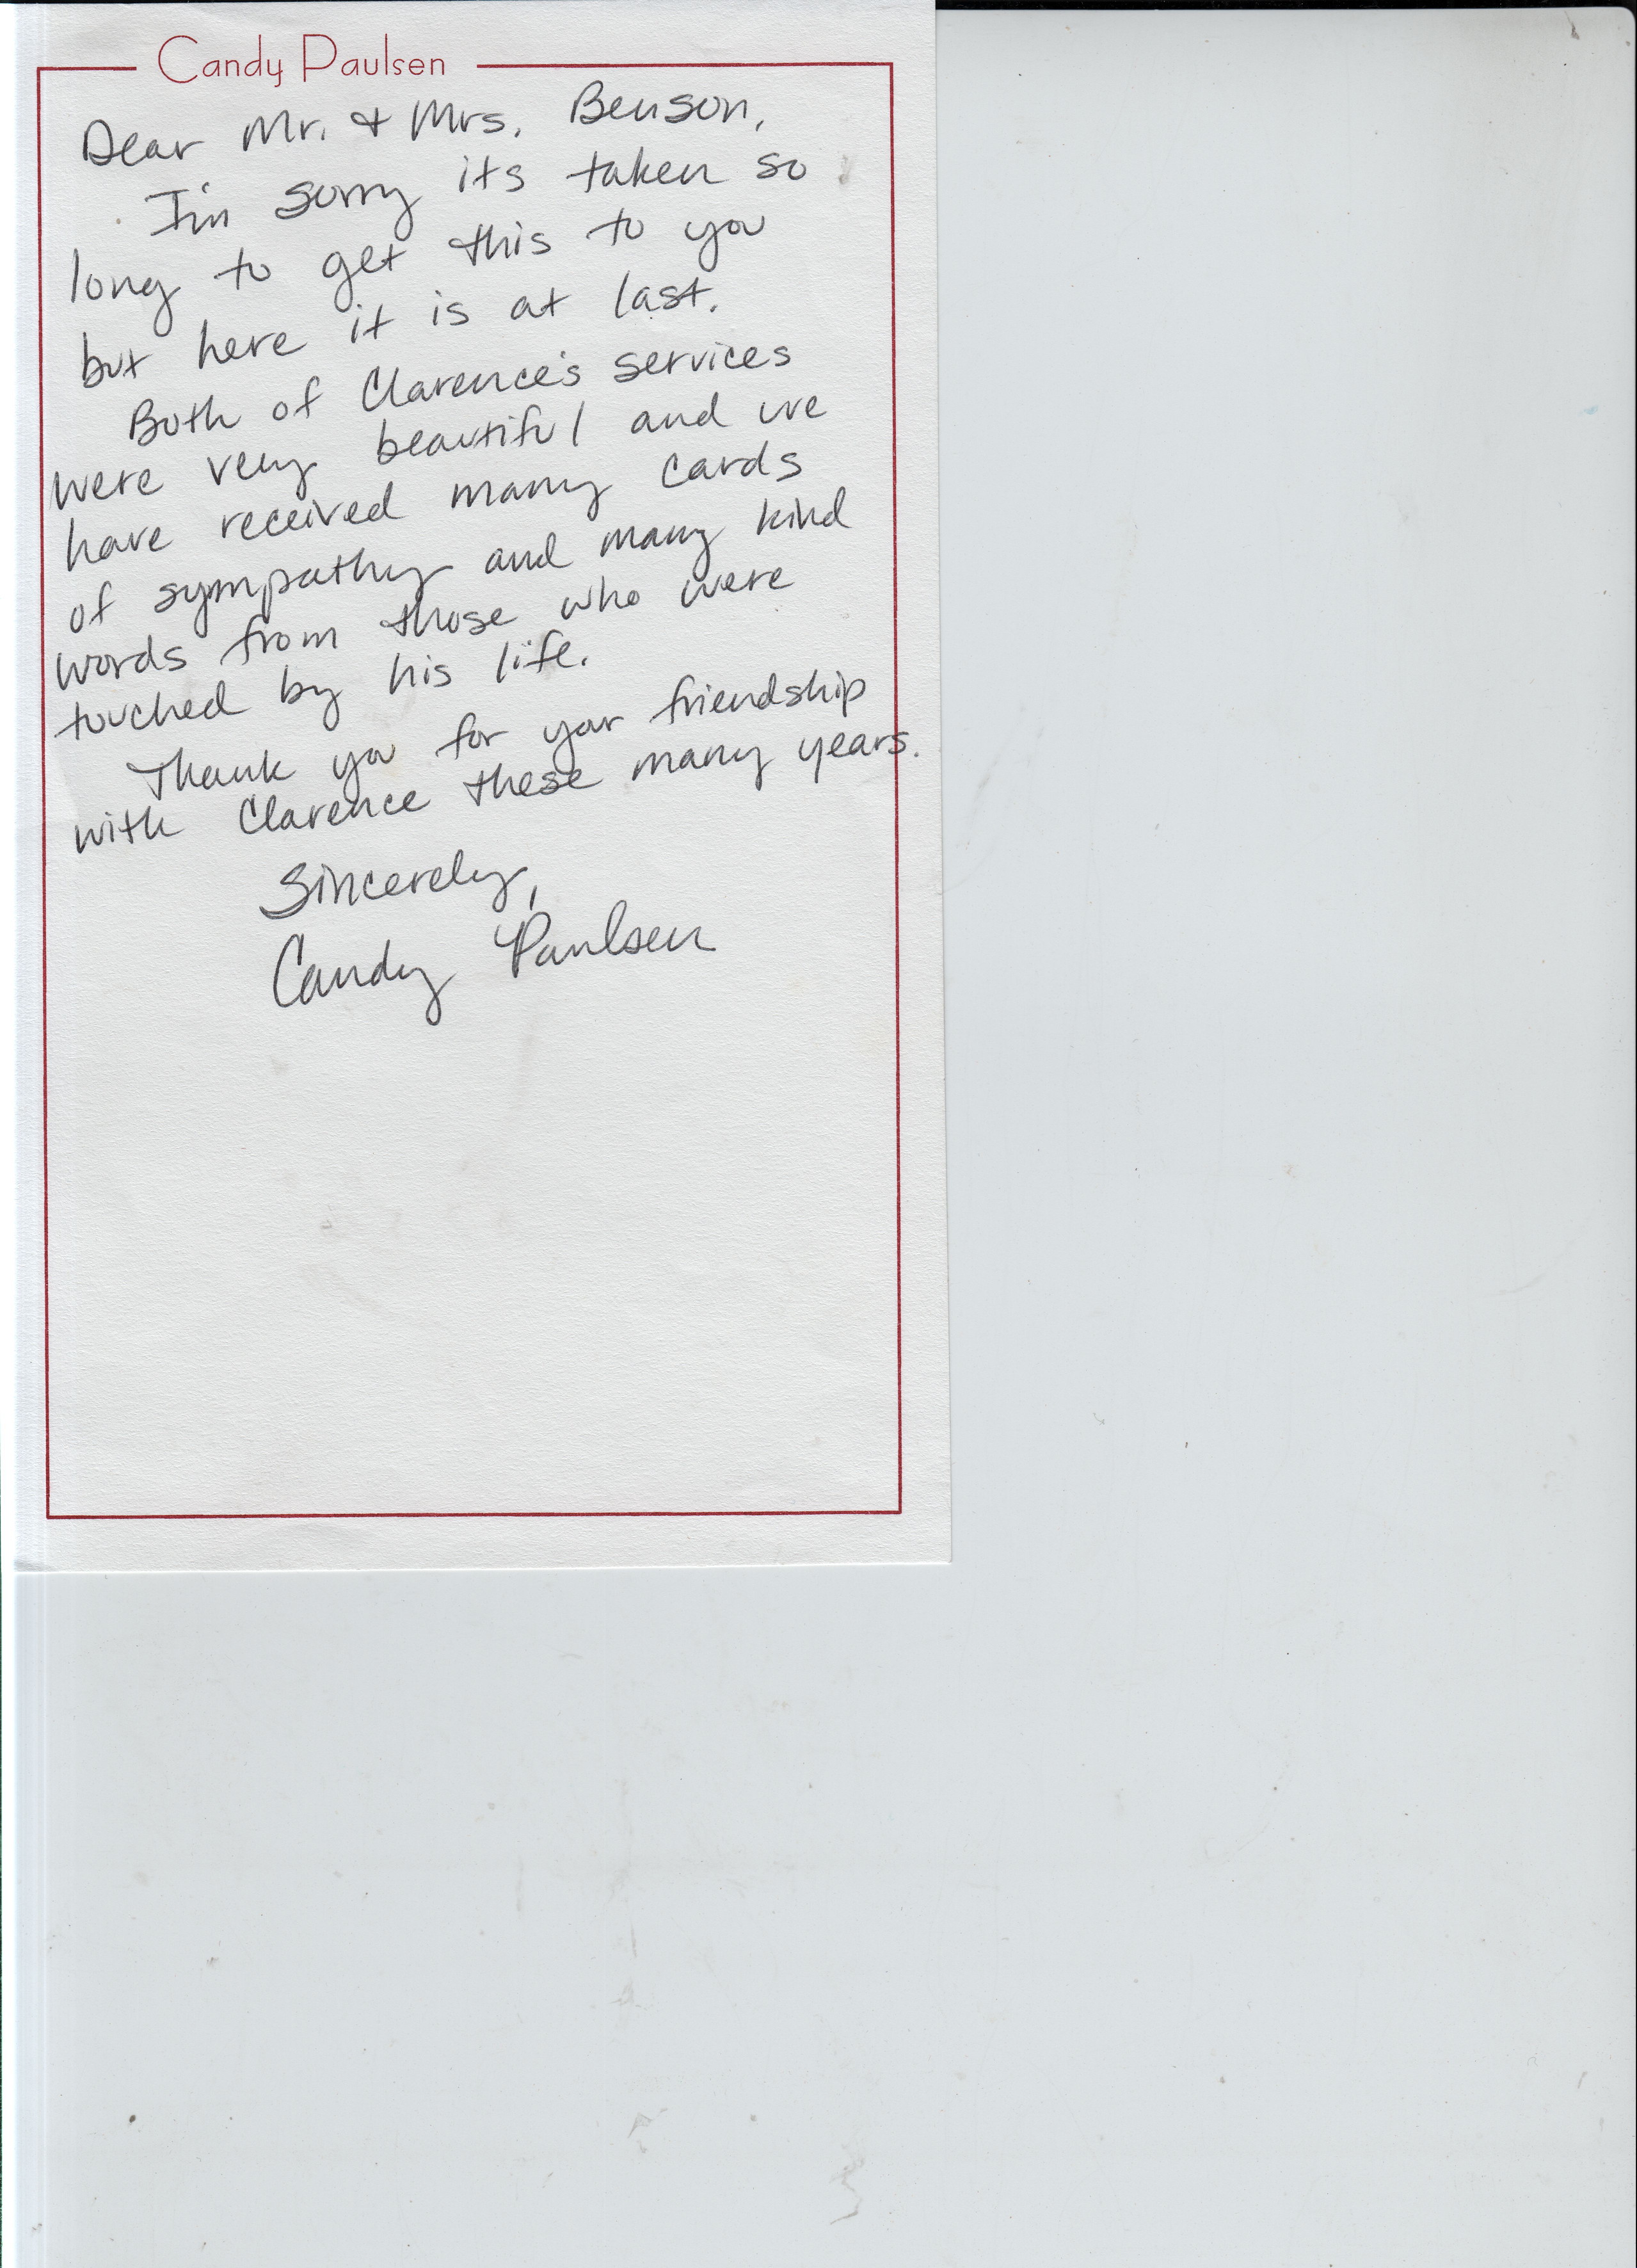 Candy Paulsen
Dear Mr. & Mrs. Benson,
I'm sorry its taken so
long to get this to you
but here it is at last.
Both of Clarence's services
were very beautiful and we
have received many cards
of sympathy and many kind
words from those who were
touched by his life.
Thank you for your friendship
with Clarence these many years.
Sincerely,
Candy Paulsen